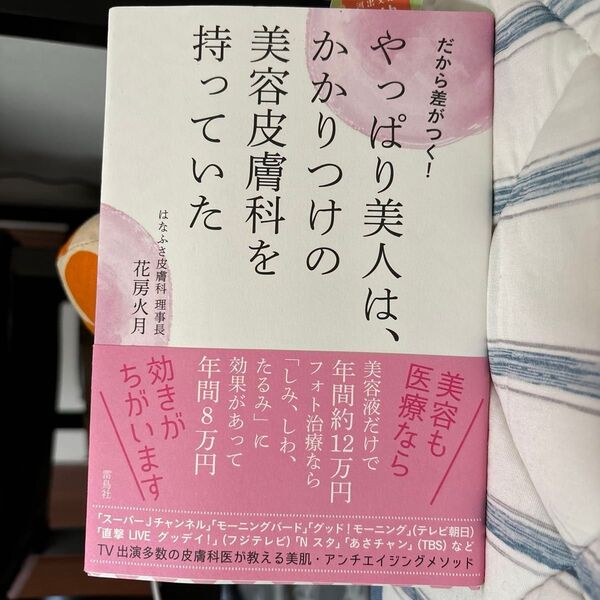 だから差がつく!
やっぱり美人は、
かかりつけの
美容皮膚科を
持っていた
はなふさ皮膚科 理事長
花房火月
美容も
医療なら
美容液だけで
年間約12万円
フォト治療なら
「しみ、しわ、
たるみ」に
効果があって
年間8万円
効きが
ちがいます
雷鳥社
「スーパーJチャンネル」「モーニングバード」「グッド!モーニング」(テレビ朝日)
「直撃LIVE グッディ!」(フジテレビ)「Nスタ」「あさチャン」(TBS)など
TV出演多数の皮膚科医が教える美肌・アンチエイジングメソッド